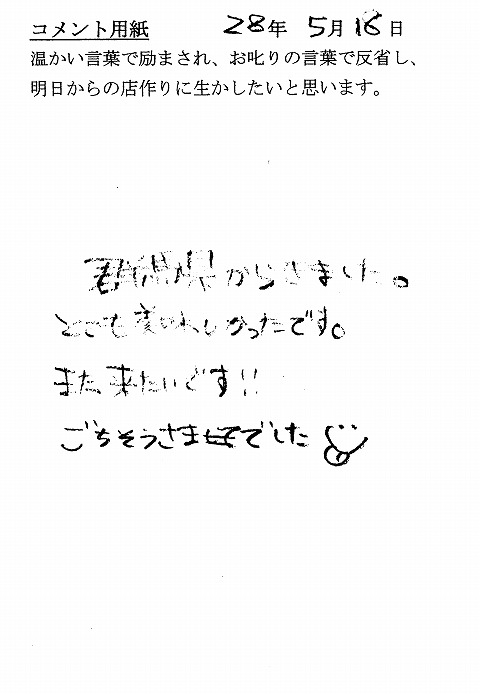 コメント用紙 28年 5月 18日
温かい言葉で励まされ、お叱りの言葉で反省し、
明日からの店作りに生かしたいと思います。
群馬県からきました。
とても美いしかったです。
また来たいです!!
ごちそうさまでした